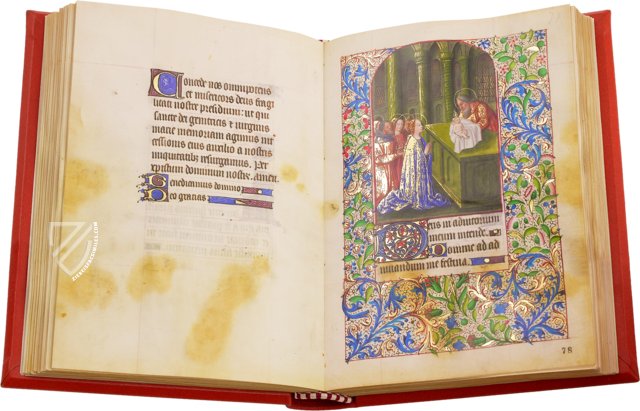 Concede nos omnipotens
et misericors deus fragi
litati nostre presidium: ut qui
sancte dei genitricis et virginis
marie memoriam agimus inter
cessionis eius auxilio a nostris
iniquitatibus resurgamus. Per
xpistum dominum nostre. Amen
Benedicamus domino
Deo gracias
Deus in adiutorium
meum intende.
Domine ad ad
iuvandum me festina.
78
ZIEREIS FACSIMILES.COM